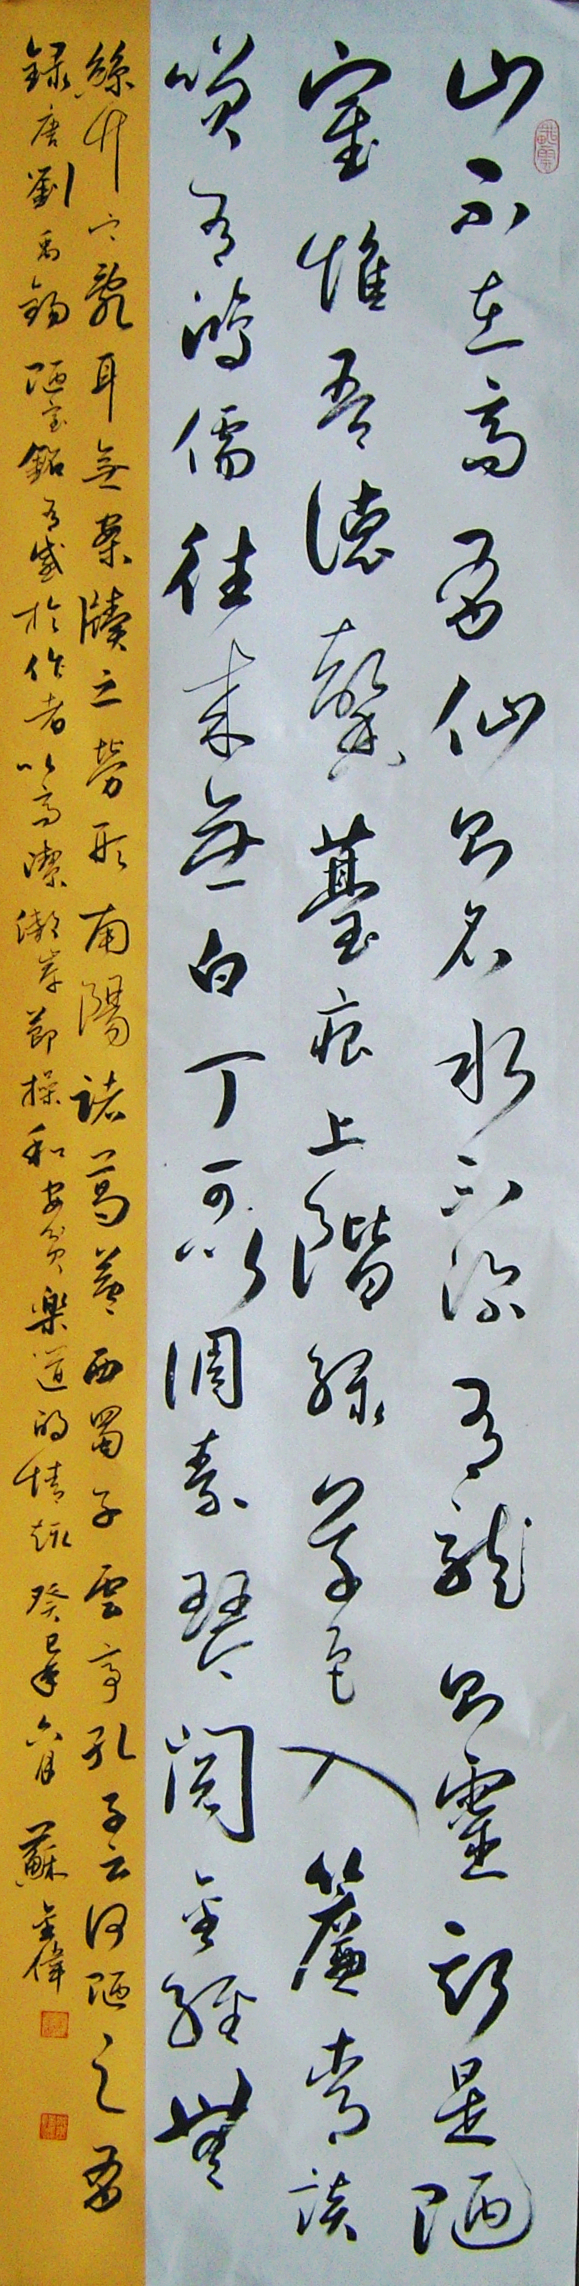 山不在高有仙则名水不深有龍则靈斯是陋
室惟吾德馨薹痕上階緑草色入簾青談
笑有鴻儒往來無白丁可以調素琴閲金經無
絲竹之亂耳無案牘之勞形南陽諸葛廬西蜀子雲亭孔子云何陋之有
録唐劉禹錫陋室銘有感於作者以高潔傲岸節操和安貧樂道的情趣癸巳年六月蘇金偉